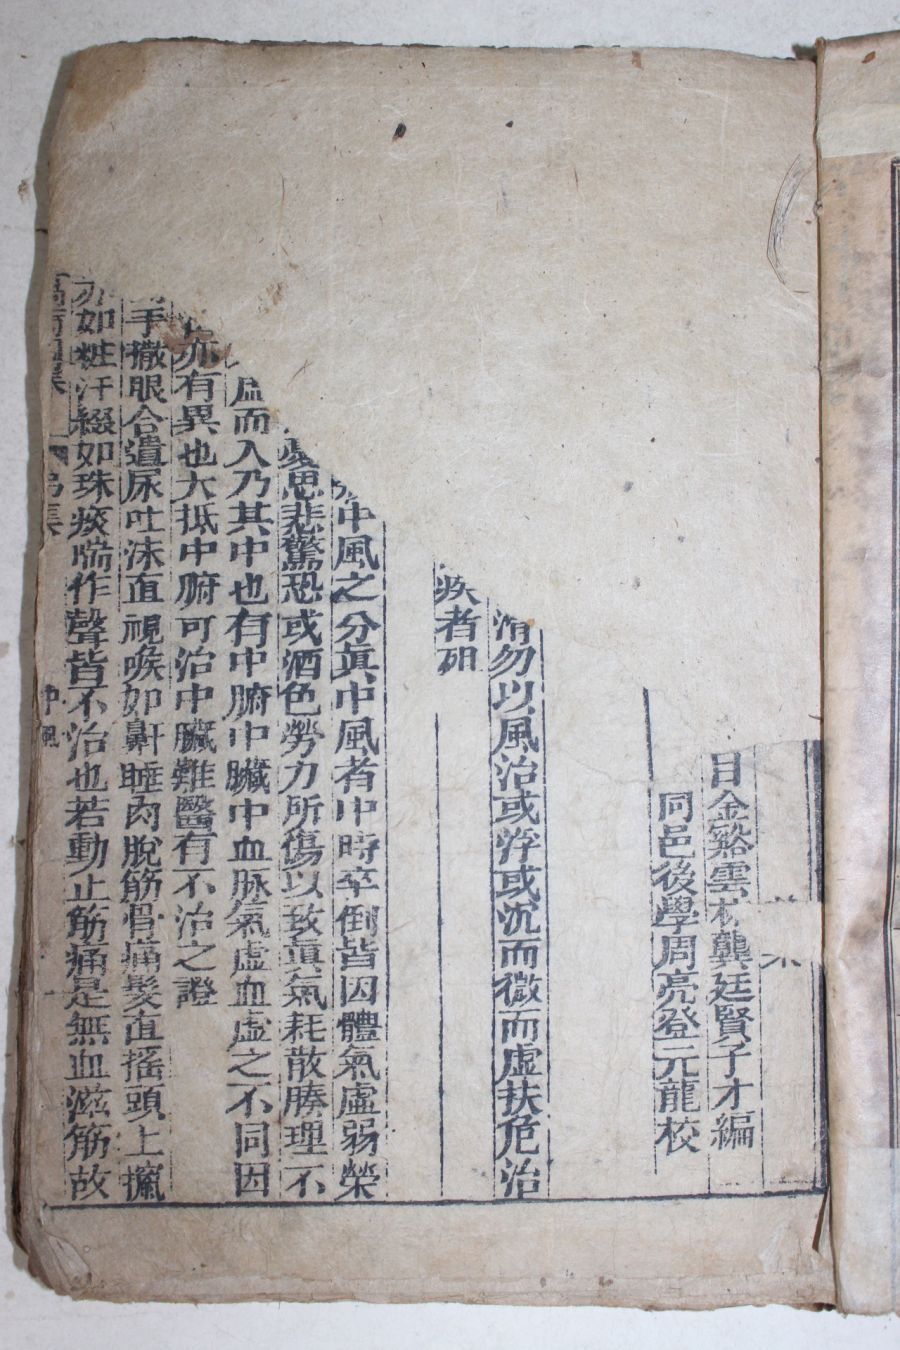 目金谿雲林龔廷賢子才編
同邑後學周亮登元龍校
消勿以風治或浮或沉而微而虛扶危治
疾者研
中風之分眞中風者中時卒倒皆因體氣虛弱榮
憂思悲驚恐或酒色勞力所傷以致眞氣耗散腠理不
虛而入乃其中也有中腑中臟中血脉氣虛血虛之不同因
亦有異也大抵中腑可治中臟難醫有不治之證
手撒眼合遺尿吐沫直視喉如鼾睡肉脫筋骨痛髮直搖頭上攛
亦如粧汗綴如珠痰喘作聲皆不治也若動止筋痛是無血滋筋故
中風